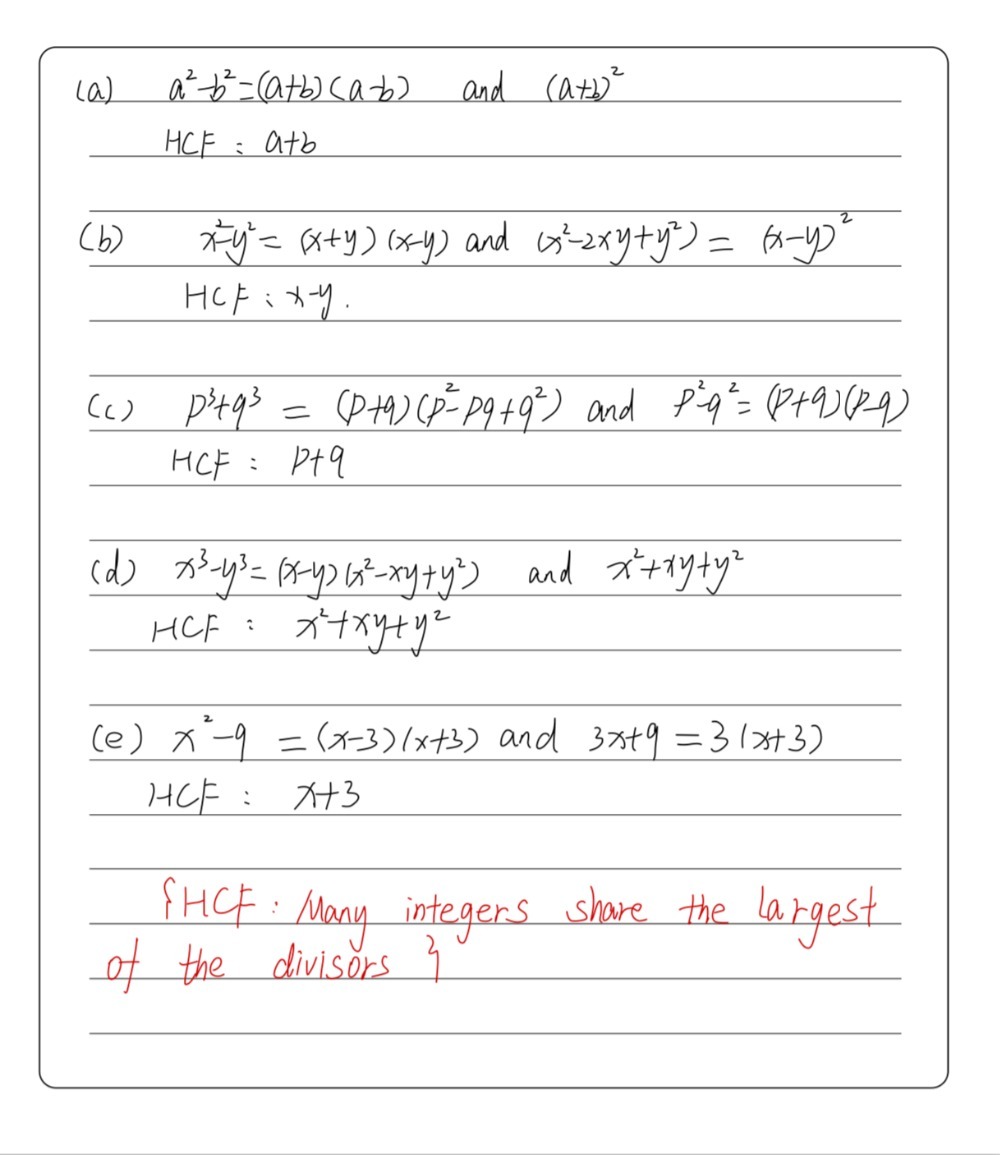 (a) a²-b²=(a+b)(a-b) and (a+b)²
HCF : a+b
(b) x²-y²= (x+y)(x-y) and (x²-2xy+y²) = (x-y)²
HCF : x-y.
(c) p³+q³ = (p+q)(p²-pq+q²) and p²-q²= (p+q)(p-q)
HCF : p+q
(d) x³-y³= (x-y)(x²-xy+y²) and x²+xy+y²
HCF : x²+xy+y²
(e) x²-9 =(x-3)(x+3) and 3x+9 =3(x+3)
HCF : x+3
{HCF : Many integers share the largest
of the divisors }